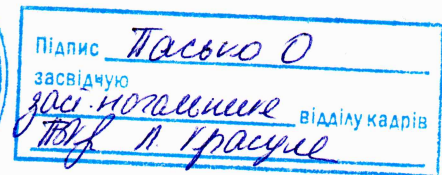 Підпис Пасько О
засвідчую
заст. начальника відділу кадрів
Л. Красуля